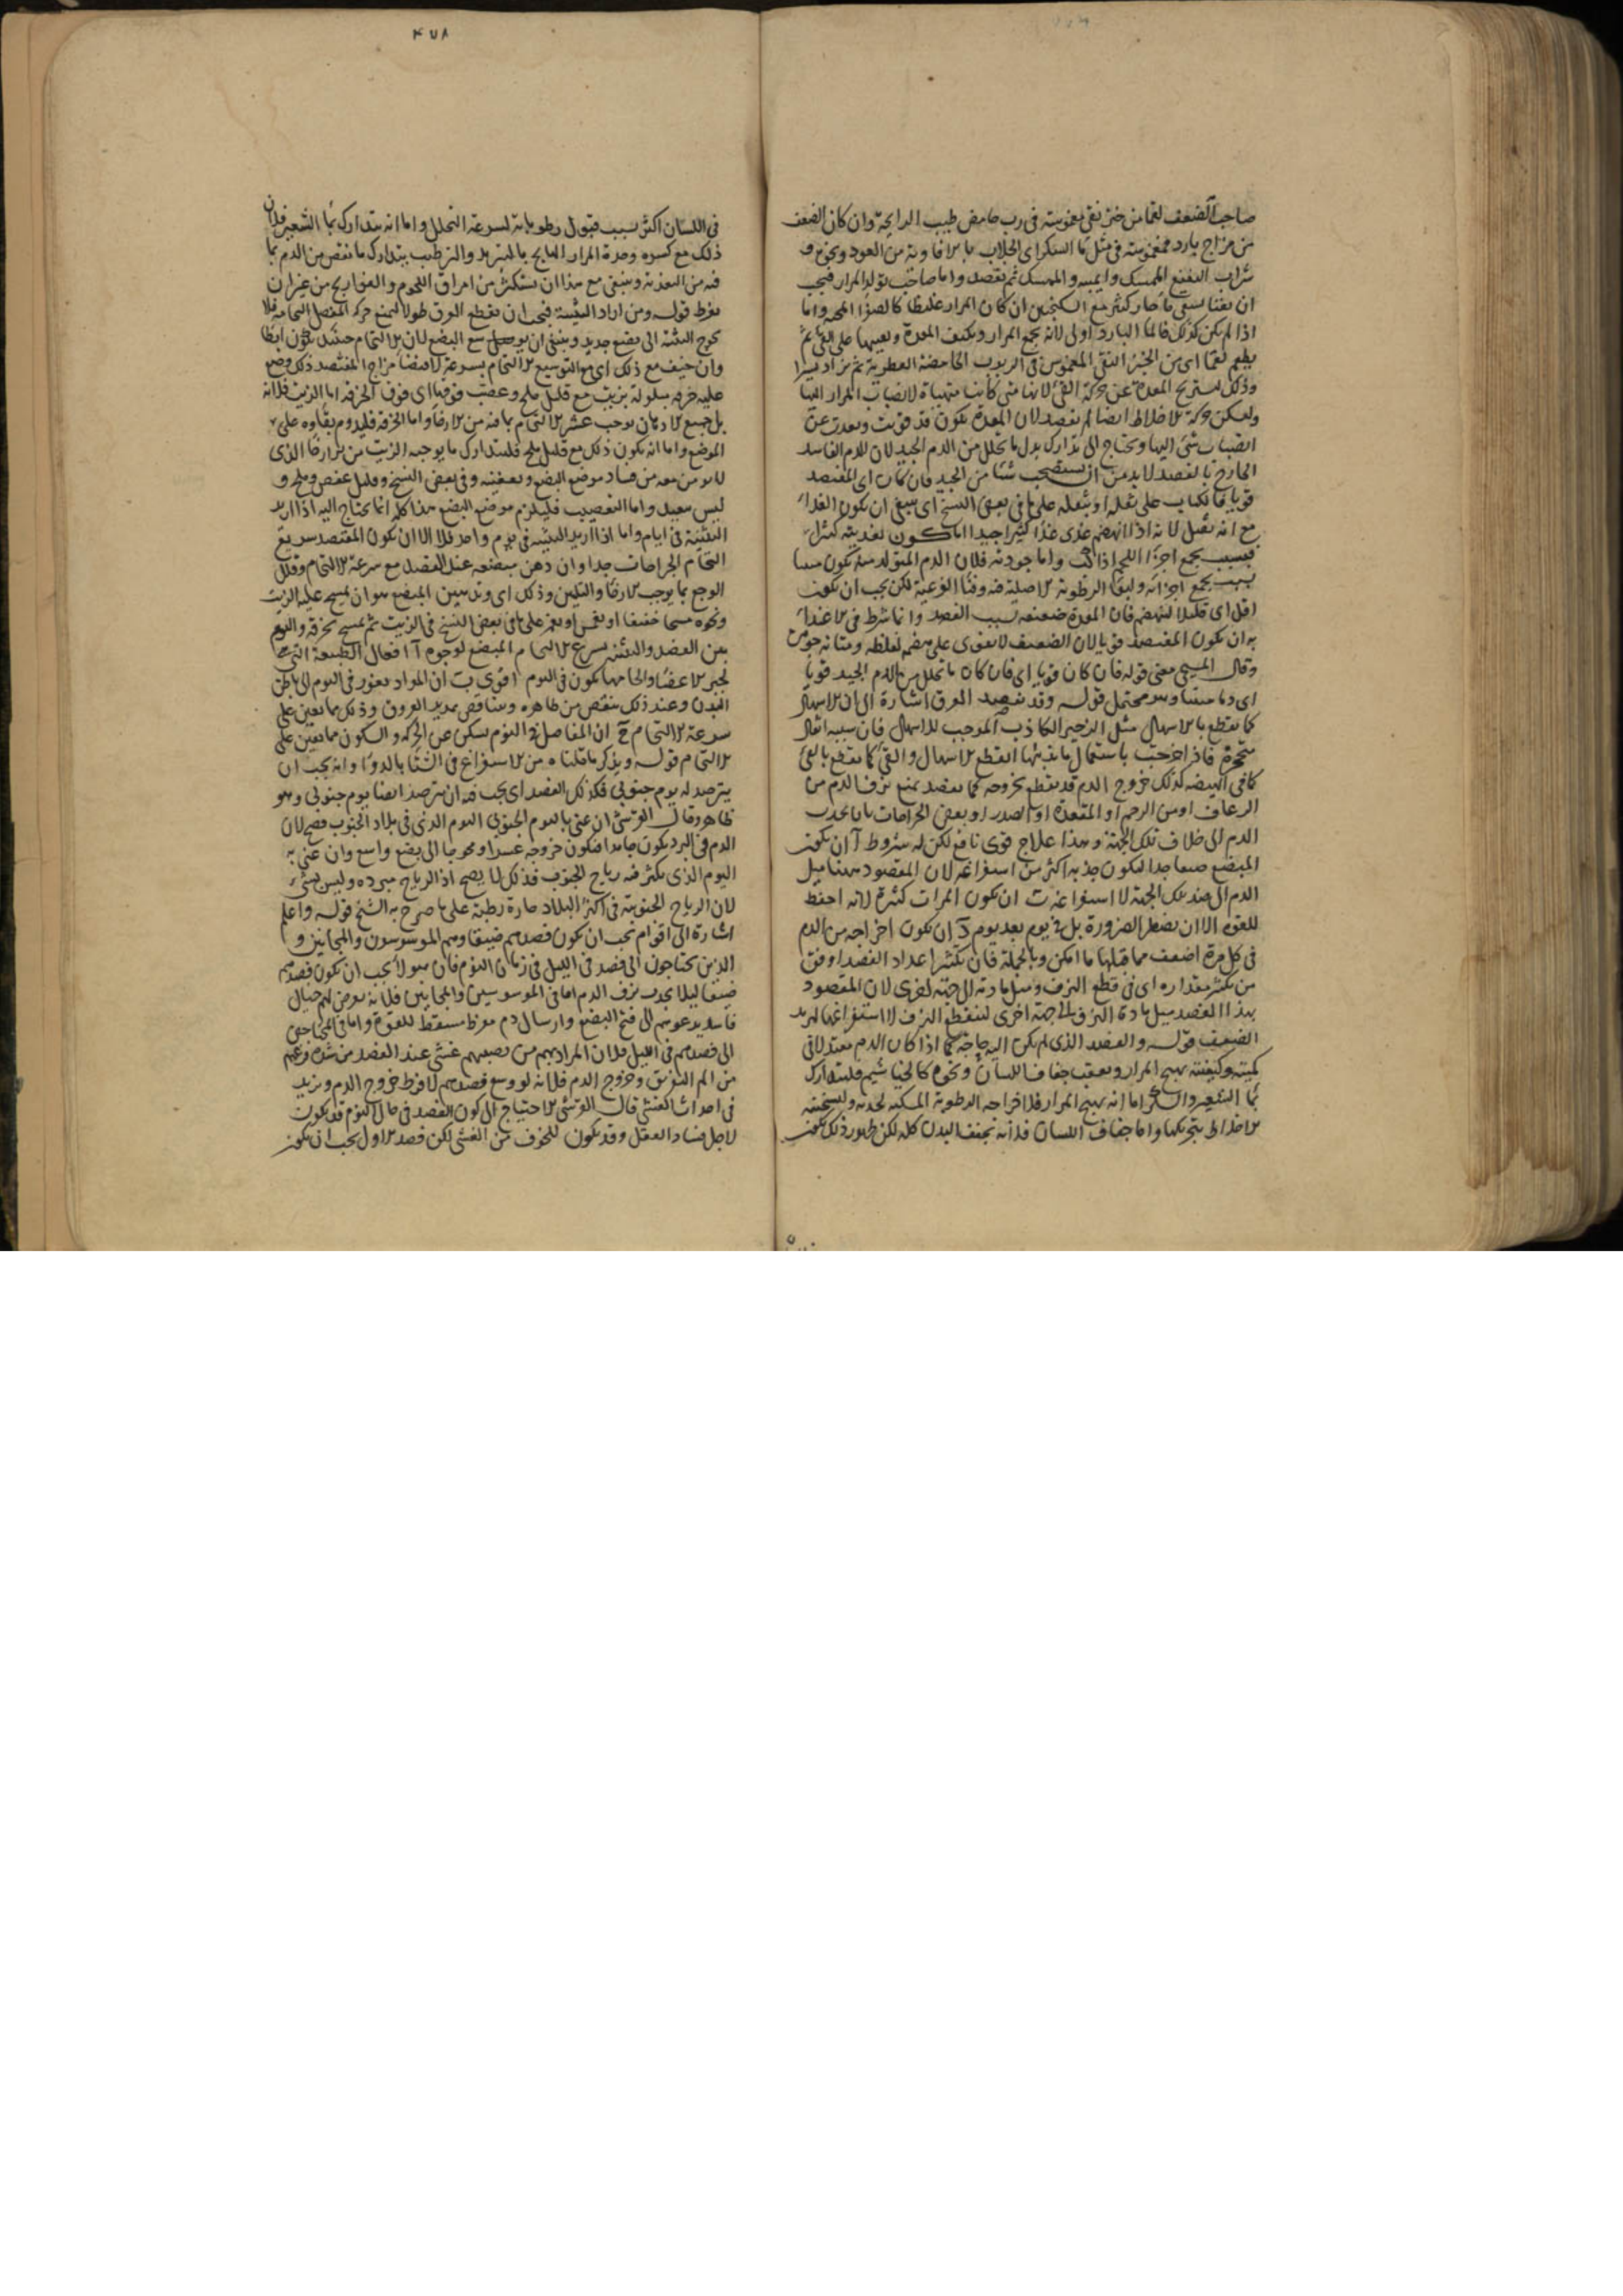 صاحب الضعف لقما من خبز نقى مغموسة فى رب حامض طيب الرايحة وان كان الضعف
من مزاج بارد فمغموسة فى مثل ماء السكر اى الجلاب بالافاوية من العود ونحوه و
شراب النعنع الممسك والميبه والممسك ثم يفصد واما صاحب تولد المرار فيجب
ان يقيا بسقى ماء حار كثير مع السكنجبين ان كان المرار غليظا كالصفراء المحية واما
اذا لم يكن كذلك فالماء البارد اولى لانه يجمع المرار ويكثف المعدة ويعينها على القى ثم
يطعم لقما اى من الخبز النقى المغموس فى الربوب الحامضة العطرية ثم يراد يسيرا
وذلك لتستريح المعدة عن حركة القى لانها متى كانت متهياة لانصباب المرار اليها
ولتسكن حركة الاخلاط ايضا ثم يفصد لان المعدة يكون قد قويت وبعدت عن
انصباب شى اليها ويحتاج الى تدارك بدل ما تحلل من الدم الجيد لان الدم الفاسد
الخارج بالفصد لا بد من ان يستصحب شيئا من الجيد فان كان اى المفتصد
قويا فالكباب على ثقله او بثقله على ما فى بعض النسخ اى ينبغى ان يكون الغذاء
مع انه ثقيل لانه اذا انهضم غذى غذاء كثيرا جيدا اما كون تغذيته كثيرا
فبسبب تجمع اجزاء اللحم اذا كبب واما جودته فلان الدم المتولد منه يكون متينا
بسبب تجمع اجزائه ولبقاء الرطوبة الاصلية فيه وفناء الفرعية لكن يجب ان يكون
اقل اى قليلا لينهضم فان المعدة ضعيفة بسبب الفصد وانما شرط فى الاغتذاء
به ان يكون المفتصد قويا لان الضعيف لا يقوى على هضمه لغلظه ومتانة جوهره
وقال المسيحى معنى قوله فان كان قويا اى فان كان ما تحلل من الدم الجيد قويا
اى دما متينا وهو محتمل قوله وقد يفصد العرق اشارة الى ان الاسهال
كما يقطع بالاسهال مثل الزحير الكاذب الموجب للاسهال فان سببه اثفال
متحجرة فاذا خرجت باستعمال ما يذيبها انقطع الاسهال والقى كما يقطع بالقى
كما فى الهيضة كذلك خروج الدم قد يقطع بخروجه كما يفصد لمنع نزف الدم من
الرعاف او من الرحم او المقعدة او الصدر او بعض الخراجات بان يجذب
الدم الى خلاف تلك الجهة وهذا علاج قوى نافع لكن له شروط آ ان يكون
المبضع ضيقا جدا ليكون جذبه اكثر من استفراغه لان المقصود ههنا ميل
الدم الى ضد تلك الجهة لا استفراغه ب ان يكون المرات كثيرة لانه احفظ
للقوة الا ان يضطر الضرورة بل فى يوم بعد يوم ج ان يكون اخراجه من الدم
فى كل مرة اضعف مما قبلها ما امكن وبالجملة فان تكثير اعداد الفصد اوفق
من تكثير مقداره اى فى قطع النزف وميل مادته الى جهة اخرى لان المقصود
بهذا الفصد ميل مادة النزف الى جهة اخرى لينقطع النزف لا استفراغها ليزيد
الضعف قوله والفصد الذى لم يكن اليه حاجة كما اذا كان الدم معتدلا فى
كميته وكيفيته يهيج المرار ويعقب جفاف اللسان ونحوه كالخياشيم فليتدارك
بماء الشعير والسكر اما انه يهيج المرار فلاخراجه الرطوبة المسكنة لحدته ولتسخينه
الاخلاط بتحريكها واما جفاف اللسان فلانه يجفف البدن كله لكن ظهور ذلك يكون
٤٧٨
فى اللسان اكثر بسبب قبول رطوباته لسرعة التحلل واما انه يتدارك بماء الشعير فلان
ذلك مع كسره وحدة المرار الهايج بالتبريد والترطيب يتدارك ما نقص من الدم بما
فيه من التغذية وينبغى مع هذا ان يستكثر من امراق اللحوم والفواريج من غير ان
يفرط قوله ومن اراد التثنية فيجب ان يقطع العرق طولا ليمنع حركة المفصل التحامه فلا
يحوج التثنية الى بضع جديد وينبغى ان يوسع البضع لان الالتحام حينئذ يكون ابطا
وان خيف مع ذلك اى مع التوسيع الالتحام بسرعة لاقتضاء مزاج المفتصد ذلك وضع
عليه خرقة مبلولة بزيت مع قليل ملح وعصب فوقها اى فوق الخرقة اما الزيت فلانه
بل جميع الادهان يوجب عسر الالتحام بما فيه من الارخاء واما الخرقة فليدوم بقاوه على
الموضع واما انه يكون ذلك مع قليل ملح فليتدارك ما يوجبه الزيت من الارخاء الذى
لا يومن معه من فساد موضع البضع وتعفينه وفى بعض النسخ وقليل عفص وملح و
ليس ببعيد واما التعصيب فليلزم موضع البضع هذا كله انما يحتاج اليه اذا اريد
التثنية فى ايام واما اذا اريد التثنية فى يوم واحد فلا الا ان يكون المفتصد سريع
التحام الجراحات جدا وان دهن مبضعه عند الفصد منع سرعة الالتحام وقلل
الوجع بما يوجب الارخاء والتليين وذلك اى وتدهين المبضع هو ان يمسح عليه الزيت
ونحوه مسحا خفيفا او يغمس او يغمز على ما فى بعض النسخ فى الزيت ثم يمسح بخرقة والنوم
بين الفصد والتثنية يسرع الالتحام المبضع لوجوه آ افعال الطبيعة التى
تجبر الاعضاء والتحامها يكون فى النوم اقوى ب ان المواد يغور فى النوم الى باطن
البدن وعند ذلك ينقص من ظاهره ويتناقص تمديد العروق وذلك مما يعين على
سرعة الالتحام ج ان المفاصل فى النوم تسكن عن الحركة والسكون مما يعين على
الالتحام قوله ويذكر ما قلناه من الاستفراغ فى الشتاء بالدواء وانه يجب ان
يترصد له يوم جنوبى فكذلك الفصد اى يجب فيه ان يترصد ايضا يوم جنوبى وهو
ظاهر وقال القرشى ان عنى باليوم الجنوبى اليوم الذى فى بلاد الجنوب فصح لان
الدم فى البرد يكون جامدا فيكون خروجه عسرا ومحوجا الى بضع واسع وان عنى به
اليوم الذى يكثر فيه رياح الجنوب فذلك لا يصح اذ الرياح مبردة وليس بشىء
لان الرياح الجنوبية فى اكثر البلاد حارة رطبة على ما صرح به الشيخ قوله واعلم
اشارة الى اقوام يجب ان يكون فصدهم ضيقا وهم الموسوسون والمجانين و
الذين يحتاجون الى فصد فى الليل فى زمان النوم فان هولاء يجب ان يكون فصدهم
ضيقا ليلا يحدث نزف الدم اما فى الموسوسين والمجانين فلانه يعرض لهم خيال
فاسد يدعوهم الى فتح البضع وارسال دم مفرط مسقط للقوة واما فى المحتاجين
الى فصدهم فى الليل فلان المراد بهم من يصيبهم غشى عند الفصد من شدة وهمهم
من الم التفرق وخروج الدم فلانه لو وسع فصدهم لافرط خروج الدم ويزيد
فى احداث الغشى قال القرشى الاحتياج الى كون الفصد فى حال النوم قد يكون
لاجل فساد العقل وقد يكون للخوف من الغشى لكن فصد الاول يجب ان يكون